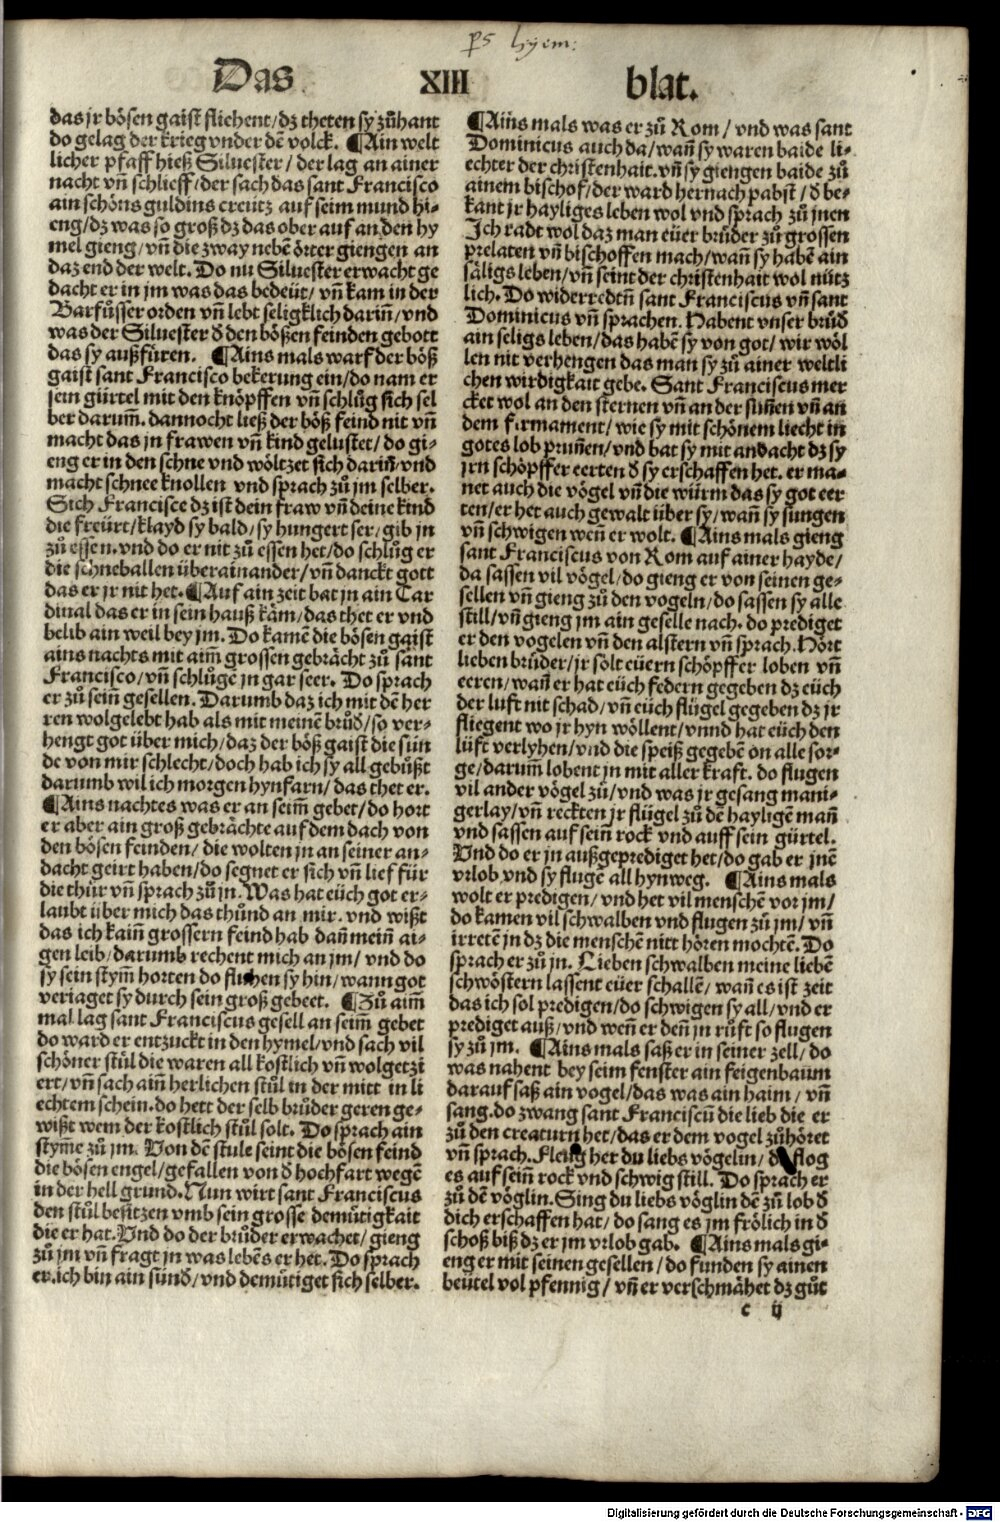 ps hyem:
Das XIII blat.
das jr bösen gaist fliehent/dz theten sy zůhant
do gelag der krieg vnder dē volck. ¶Ain welt
licher pfaff hieß Siluester/der lag an ainer
nacht vñ schlieff/der sach das sant Francisco
ain schöns guldins creütz auf seim mund hi-
eng/dz was so groß dz das ober auf an den hy
mel gieng/vñ die zway nebē örter giengen an
daz end der welt. Do nu Siluester erwacht ge
dacht er in jm was das bedeüt/vñ kam in der
Barfůsser orden vñ lebt seligklich dariñ/vnd
was der Siluester d̕ den bößen feinden gebott
das sy außfüren. ¶Ains mals warf der böß
gaist sant Francisco bekerung ein/do nam er
sein gürtel mit den knöpffen vñ schlůg sich sel
ber darum̄. dannocht ließ der böß feind nit vñ
macht das jn frawen vñ kind gelustet/do gi-
eng er in den schne vnd wöltzet sich dariñ/vnd
macht schnee knollen vnd sprach zů jm selber.
Sich Francisce dz ist dein fraw vñ deine kind
die freürt/klayd sy bald/sy hungert ser/gib jn
zů essen. vnd do er nit zů essen het/do schlůg er
die schneballen überainander/vñ danckt gott
das er jr nit het. ¶Auf ain zeit bat jn ain Car
dinal das er in sein hauß käm/das thet er vnd
belib ain weil bey jm. Do kamē die bösen gaist
ains nachts mit aim̄ grossen gebrächt zů sant
Francisco/vñ schlůgē jn gar seer. Do sprach
er zů sein̄ gesellen. Darumb daz ich mit dē her
ren wolgelebt hab als mit meinē brůd̕/so ver-
hengt got über mich/daz der böß gaist die sün
de von mir schlecht/doch hab ich sy all gebůßt
darumb wil ich morgen hynfarn/das thet er.
¶Ains nachtes was er an seim̄ gebet/do hort
er aber ain groß gebrächte auf dem dach von
den bösen feinden/die wolten jn an seiner an-
dacht geirt haben/do segnet er sich vñ lief für
die thür vñ sprach zů jn. Was hat eüch got er-
laubt über mich das thůnd an mir. vnd wißt
das ich kain̄ grossern feind hab dañ mein̄ ai-
gen leib/darumb rechent mich an jm/vnd do
sy sein stym̄ horten do fluhen sy hin/wann got
veriaget sy durch sein groß gebeet. ¶Zů aim̄
mal lag sant Franciscus gesell an seim̄ gebet
do ward er entzuckt in den hymel/vnd sach vil
schöner stůl die waren all kostlich vñ wolgetzi
ert/vñ sach ain̄ herlichen stůl in der mitt in li
echtem schein. do hett der selb brůder geren ge-
wißt wem der kostlich stůl solt. Do sprach ain
stym̄e zů jm. Von dē stůle seint die bösen feind
die bösen engel/gefallen von d̕ hochfart wegē
in der hell grund. Nun wirt sant Franciscus
den stůl besitzen vmb sein grosse demütigkait
die er hat. Vnd do der brůder erwachet/gieng
zů jm vñ fragt jn was lebēs er het. Do sprach
er. ich bin ain sünd̕/vnd demütiget sich selber.
¶Ains mals was er zů Rom/vnd was sant
Dominicus auch da/wañ sy waren baide li-
echter der christenhait. vñ sy giengen baide zů
ainem bischof/der ward hernach pabst/d̕ be-
kant jr hayliges leben wol vnd sprach zů jnen
Ich radt wol daz man eüer brůder zů grossen
prelaten vñ bischoffen mach/wañ sy habē ain
säligs leben/vñ seint der christenhait wol nütz
lich. Do widerredtñ sant Franciscus vñ sant
Dominicus vñ sprachen. Habent vnser brůd̕
ain seligs leben/das habē sy von got/wir wöl
len nit verhengen das man sy zů ainer weltli
chen wirdigkait gebe. Sant Franciscus mer
cket wol an den sternen vñ an der suñen vñ an
dem firmament/wie sy mit schönem liecht in
gotes lob pruñen/vnd bat sy mit andacht dz sy
jrn schöpffer eerten d̕ sy erschaffen het. er ma-
net auch die vögel vñ die würm das sy got eer
ten/er het auch gewalt über sy/wañ sy sungen
vñ schwigen weñ er wolt. ¶Ains mals gieng
sant Franciscus von Rom auf ainer hayde/
da sassen vil vögel/do gieng er von seinen ge-
sellen vñ gieng zů den vogeln/do sassen sy alle
still/vñ gieng jm ain geselle nach. do prediget
er den vogelen vñ den alstern vñ sprach. Hört
lieben brůder/jr sölt eüern schöpffer loben vñ
eeren/wañ er hat eüch federn gegeben dz eüch
der luft nit schad/vñ eüch flügel gegeben dz jr
fliegent wo jr hyn wöllent/vnnd hat eüch den
lüft verlyhen/vnd die speiß gegebē on alle sor-
ge/darum̄ lobent jn mit aller kraft. do flugen
vil ander vögel zů/vnd was jr gesang mani-
gerlay/vñ reckten jr flügel zů dē hayligē mañ
vnd sassen auf sein̄ rock vnd auff sein gürtel.
Vnd do er jn außgeprediget het/do gab er jnē
vrlob vnd sy flugē all hynweg. ¶Ains mals
wolt er predigen/vnd het vil menschē vor jm/
do kamen vil schwalben vnd flugen zů jm/vñ
irretē jn dz die menschē nitt hören mochtē. Do
sprach er zů jn. Lieben schwalben meine liebē
schwöstern lassent eüer schallē/wañ es ist zeit
das ich sol predigen/do schwigen sy all/vnd er
prediget auß/vnd weñ er deñ jn růft so flugen
sy zů jm. ¶Ains mals saß er in seiner zell/do
was nahent bey seim fenster ain feigenbaum
darauf saß ain vogel/das was ain haim/vñ
sang. do zwang sant Franciscū die lieb die er
zů den creaturn het/das er dem vogel zůhöret
vñ sprach. Fleug her du liebs vögelin/ flog
es auf sein̄ rock vnd schwig still. Do sprach er
zů dē vöglin. Sing du liebs vöglin dē zů lob d̕
dich erschaffen hat/do sang es jm frölich in d̕
schoß biß dz er jm vrlob gab. ¶Ains mals gi-
eng er mit seinen gesellen/do funden sy ainen
beütel vol pfennig/vñ er verschmähet dz gůt
c ij
Digitalisierung gefördert durch die Deutsche Forschungsgemeinschaft - DFG